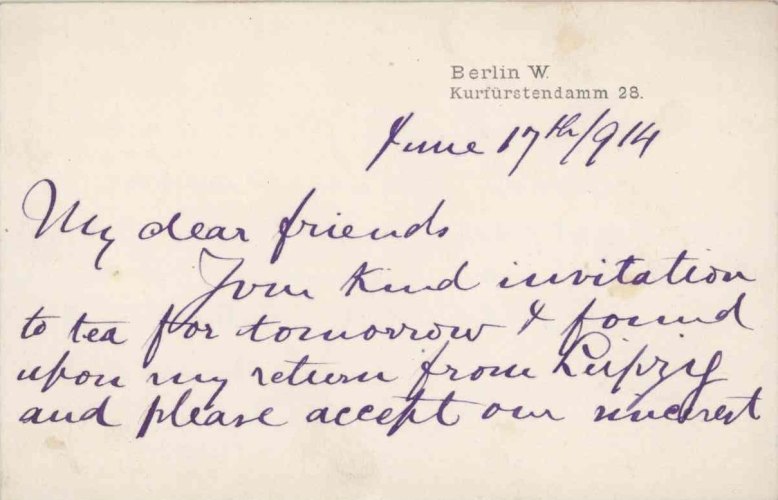 Berlin W.
Kurfürstendamm 28.
June 17th/914
My dear friends
Your kind invitation
to tea for tomorrow I found
upon my return from Leipzig
and please accept our sincerest